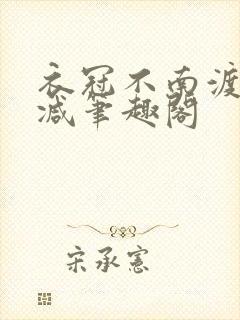 衣冠不南渡
减笔趣阁
宋承憲